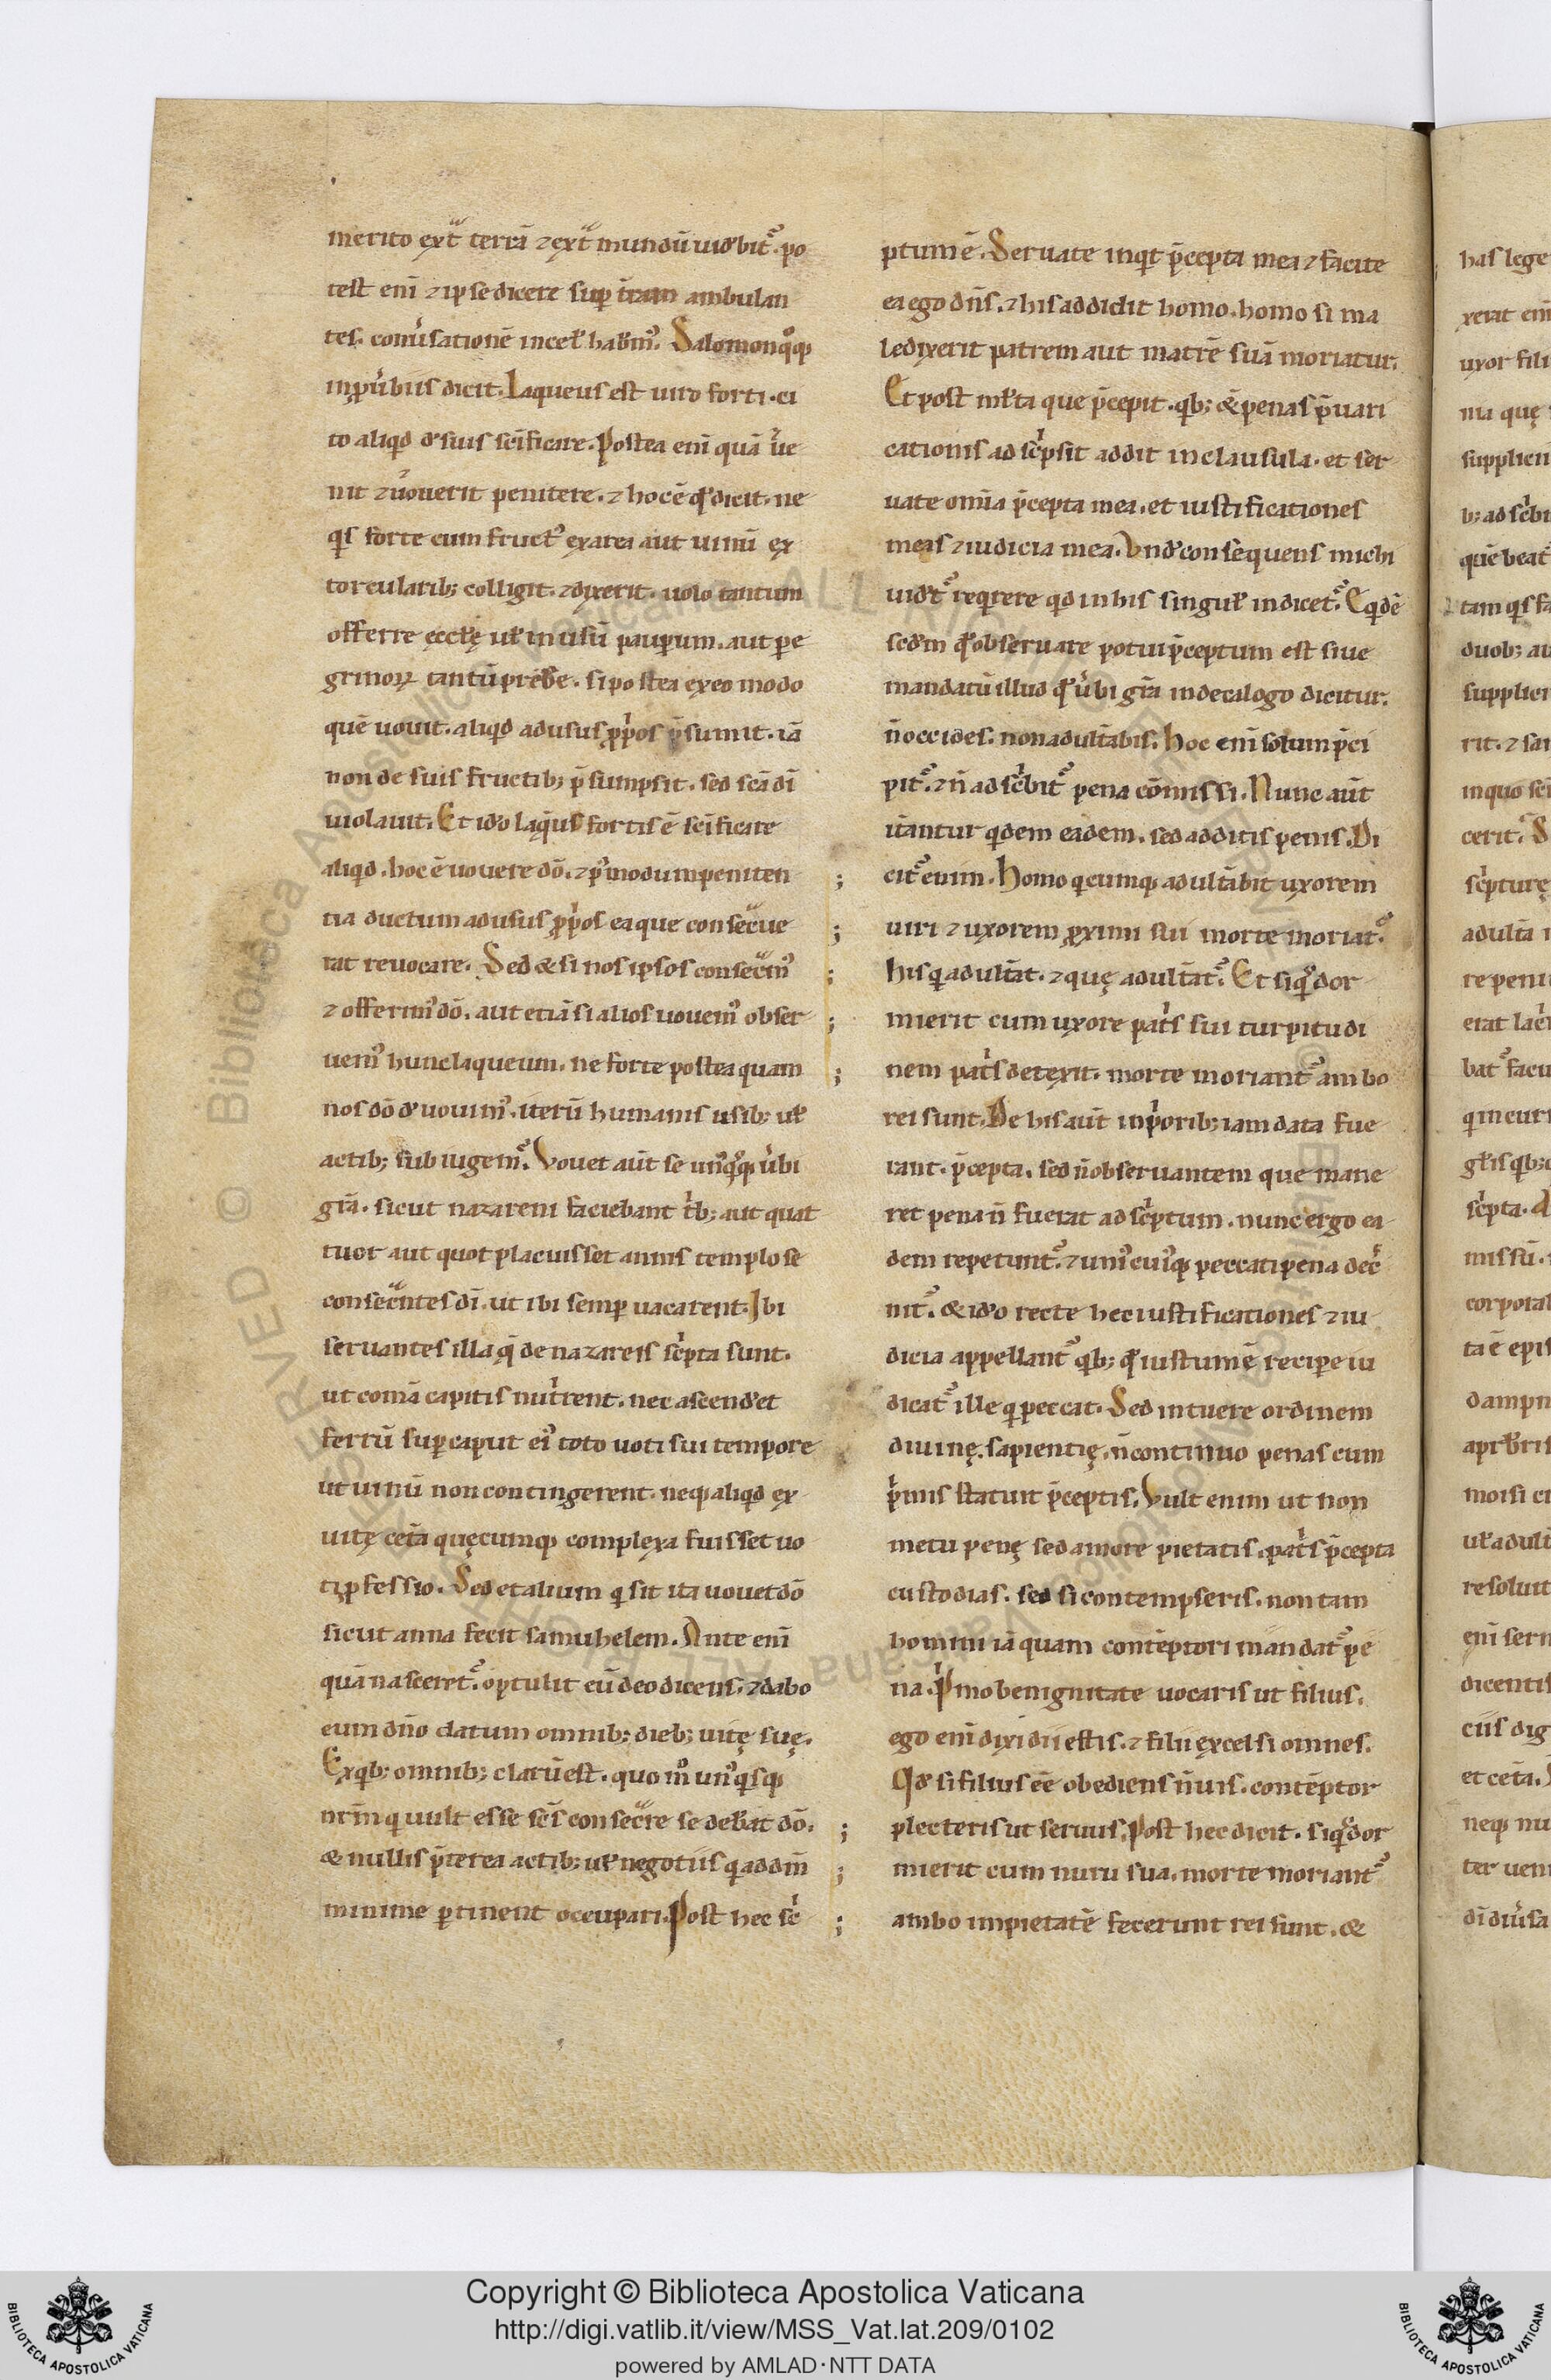 merito ext̃ terrã ⁊ ext̃ mundũ uidebit᷒. po
test enĩ ⁊ ipse dicere sup t̃ram ambulan
tes. conũsationẽ in cel̃ habem᷒. Salomon qͦqꝫ
in puerbiis dicit. Laqueus est uiro forti. ci
to aliqd de suis sc̃ificare. Postea enĩ quã ue
nit ⁊ uouerit penitere. ⁊ hoc ẽ qd̃ dicit. ne
qis forte cum fruct᷒ ex area aut uinũ ex
torcularibꝫ colligit. ⁊ dixerit. uolo tantum
offerre eccłę uł in usũ pauꝑum. aut ꝑe
grinoꝝ tantũ prebe. si postea ex eo modo
quẽ uouit. aliqd ad usus ꝓp̃os p̃sumit. iã
non de suis fructibꝫ p̃sumpsit. sed sc̃a dĩ
uiolauit. Et ido laq̃us fortis ẽ sc̃ificare
aliqd. hoc ẽ uouere dõ. ⁊ p᷒ modum peniten
tia ductum ad usus ꝓp̃os ea que consecue
rat reuocare. Sed & si nos ipsos consecm᷒
⁊ offerim᷒ dõ. aut etiã si alios uouem᷒ obser
uem᷒ hunc laqueum. ne forte postea quam
nos dõ deuouim᷒. iterũ humanis usibꝫ uł
actibꝫ subiugem᷒. Vouet aũt se un᷒qͥqꝫ ũbi
grã. sicut nazarei faciebant t̃bꝫ aut quat
tuor aut quot placuisset annis templo se
consecntes dĩ. ut ibi semꝑ uacarent. Ibi
seruantes illa q̃ de nazareis sc̃pta sunt.
ut comã capitis nutrent. nec ascendet
ferrũ suꝑ caput ei᷒ toto uoti sui tempore
ut uinũ non contingerent. neqꝫ aliqd ex
uite cet̃a quęcumqꝫ complexa fuisset uo
ti ꝓfessio. Sed et alium q sit ita uouet dõ
sicut anna fecit samuhelem. Ante enĩ
quã nasceret᷒. optulit eũ deo dicens. ⁊ dabo
eum dño datum omnibꝫ diebꝫ uitę suę.
Ex qbꝫ omnibꝫ clarũ est. quo mͦ un᷒qisqꝫ
nr̃m q uult esse sc̃s consecre se debeat dõ.
& nullis p̃terea actibꝫ uł negotiis q ad dm̃
minime ꝑtinent occupari. Post hec sc̃
ptum ẽ. Seruate inqt p̃cepta mea ⁊ facite
ea ego dñs. ⁊ his addidit homo. homo si ma
ledixerit patrem aut matrẽ suã moriatur.
Et post młta que p̃cepit. qbꝫ & penas p̃uari
cationis adsc̃psit addit in clausula. et ser
uate omĩa p̃cepta mea. et iustificationes
meas ⁊ iudicia mea. Vnde consequens michi
uidet᷒ reqrere qd in his singuł indicet᷒. Eqdẽ
secdm qd̃ obseruare potui p̃ceptum est siue
mandatũ illud qd̃ ũbi grã in decalogo dicitur.
ñ occides. non adult̃abis. Hoc enĩ solum p̃ci
pit᷒. ⁊ ñ adsc̃bit᷒ pena cõmissi. Nunc aũt
it̃antur qdem eadem. sed additis penis. Di
cit᷒ enim. Homo qcumqꝫ adult̃abit uxorem
uiri ⁊ uxorem ꝓximi sui morte moriat᷒.
his q adult̃at. ⁊ quę adult̃at᷒. Et si qͥs dor
mierit cum uxore pat̃s sui turpitudi
nem pat̃s detexit. morte moriant᷒ ambo
rei sunt. De his aũt in p̃oribꝫ iam data fue
rant. p̃cepta. sed ñ obseruantem que mane
ret pena ñ fuerat adsc̃ptum. nunc ergo ea
dem repetunt᷒. ⁊ uni᷒cui᷒qꝫ peccati pena dec̃
nit᷒. & ideo recte hec iustificationes ⁊ iu
dicia appellant᷒ qbꝫ qd̃ iustum ẽ reciꝑe iu
dicat᷒ ille q peccat. Sed intuere ordinem
diuinę. sapientię. ñ continuo penas cum
p̃mis statuit p̃ceptis. Vult enim ut non
metu penę sed amore pietatis. pat̃s p̃cepta
custodias. sed si contempseris. non tam
homini iã quam contẽptori mandat᷒ pe
na. P̃mo benignitate uocaris ut filius.
ego enĩ dixi dii estis. ⁊ filii excelsi omnes.
Qd̃ si filius eẽ obediens ñ uis. contẽptor
plecteris ut seruus. Post hec dicit. si qͥs dor
mierit cum nuru sua. morte moriant᷒
ambo impietatẽ fecerunt rei sunt. &
has lege
xerat enĩ
uxor fili
na quę
supplicii
bꝫ adsc̃bi
quẽ beat
tam qis fa
duobꝫ au
supplici
rit. ⁊ san
in quo
cerit᷒. S
sc̃pturę
adult̃a
re peni
erat lac̃
bat᷒ facu
q incur
sc̃pta.
missũ.
corporal
ta ẽ epis
dampn
moisi
uł adult
resoluit
enĩ ser
dicentis
ciis dig
et cet̃a.
neqꝫ nu
ter uen
dĩ diũsa
Copyright © Biblioteca Apostolica Vaticana
http://digi.vatlib.it/view/MSS_Vat.lat.209/0102
powered by AMLAD·NTT DATA
BIBLIOTECA APOSTOLICA VATICANA
BIBLIOTECA APOSTOLICA VATICANA